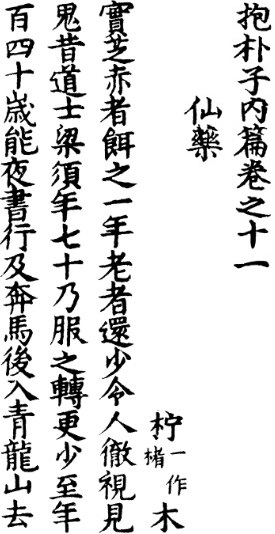 抱朴子内篇卷之十一
仙藥
柠一作楮木
實芝赤者餌之一年老者還少令人徹視見
鬼昔道士梁須年七十乃服之轉更少至年
百四十歲能夜書行及奔馬後入青龍山去